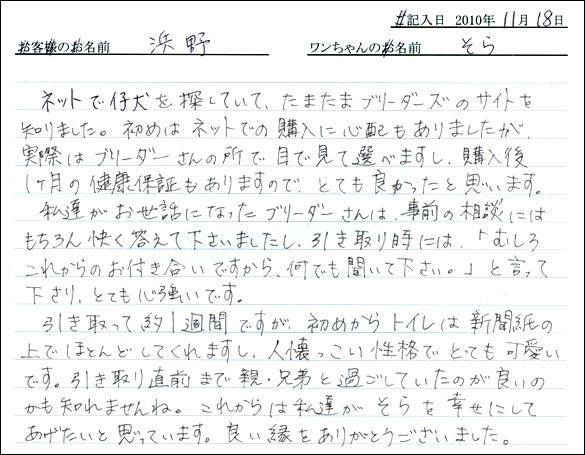 記入日 2010年 11月 18日
お客様のお名前 浜野 ワンちゃんのお名前 そら
ネットで仔犬を探していて、たまたまブリーダーズのサイトを
知りました。初めはネットでの購入に心配もありましたが、
実際はブリーダーさんの所で目で見て選べますし、購入後
1ヶ月の健康保証もありますので、とても良かったと思います。
私達がお世話になったブリーダーさんは、事前の相談には
もちろん快く答えて下さいましたし、引き取り時には、「むしろ
これからのお付き合いですから、何でも聞いて下さい。」と言って
下さり、とても心強いです。
引き取って約1週間ですが、初めからトイレは新聞紙の
上でほとんどしてくれますし、人懐っこい性格でとても可愛い
です。引き取り直前まで親・兄弟と過ごしていたのが良いの
かも知れませんね。これからは私達がそらを幸せにして
あげたいと思っています。良い縁をありがとうございました。